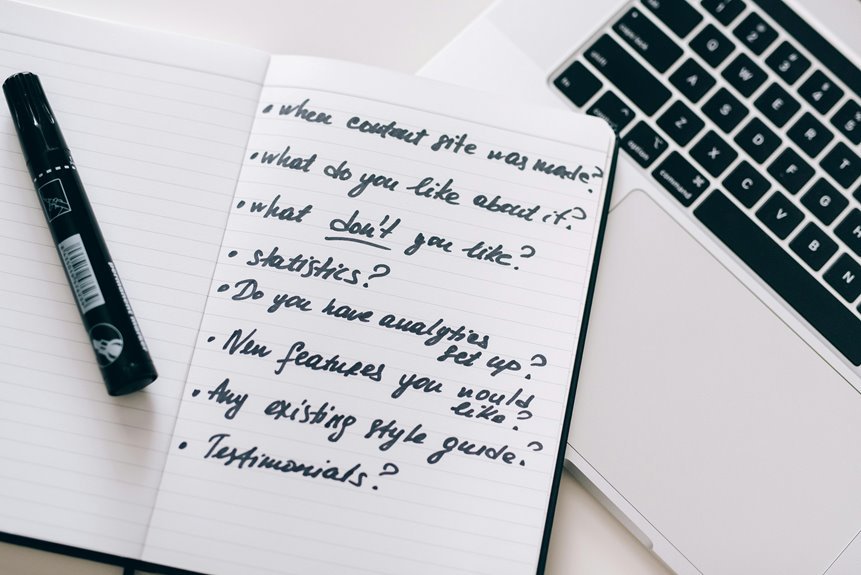 • when content site was made?
• what do you like about it?
• what don't you like?
• statistics?
• Do you have analytics
set up?
• New features you would
like?
• Any existing style guide?
• Testimonials?
! 1
@ 2
# 3
$ 4
% 5
Q W E R
A S D F
Z X C V B N
caps lock
shift
fn
option
command
⌘
T
G